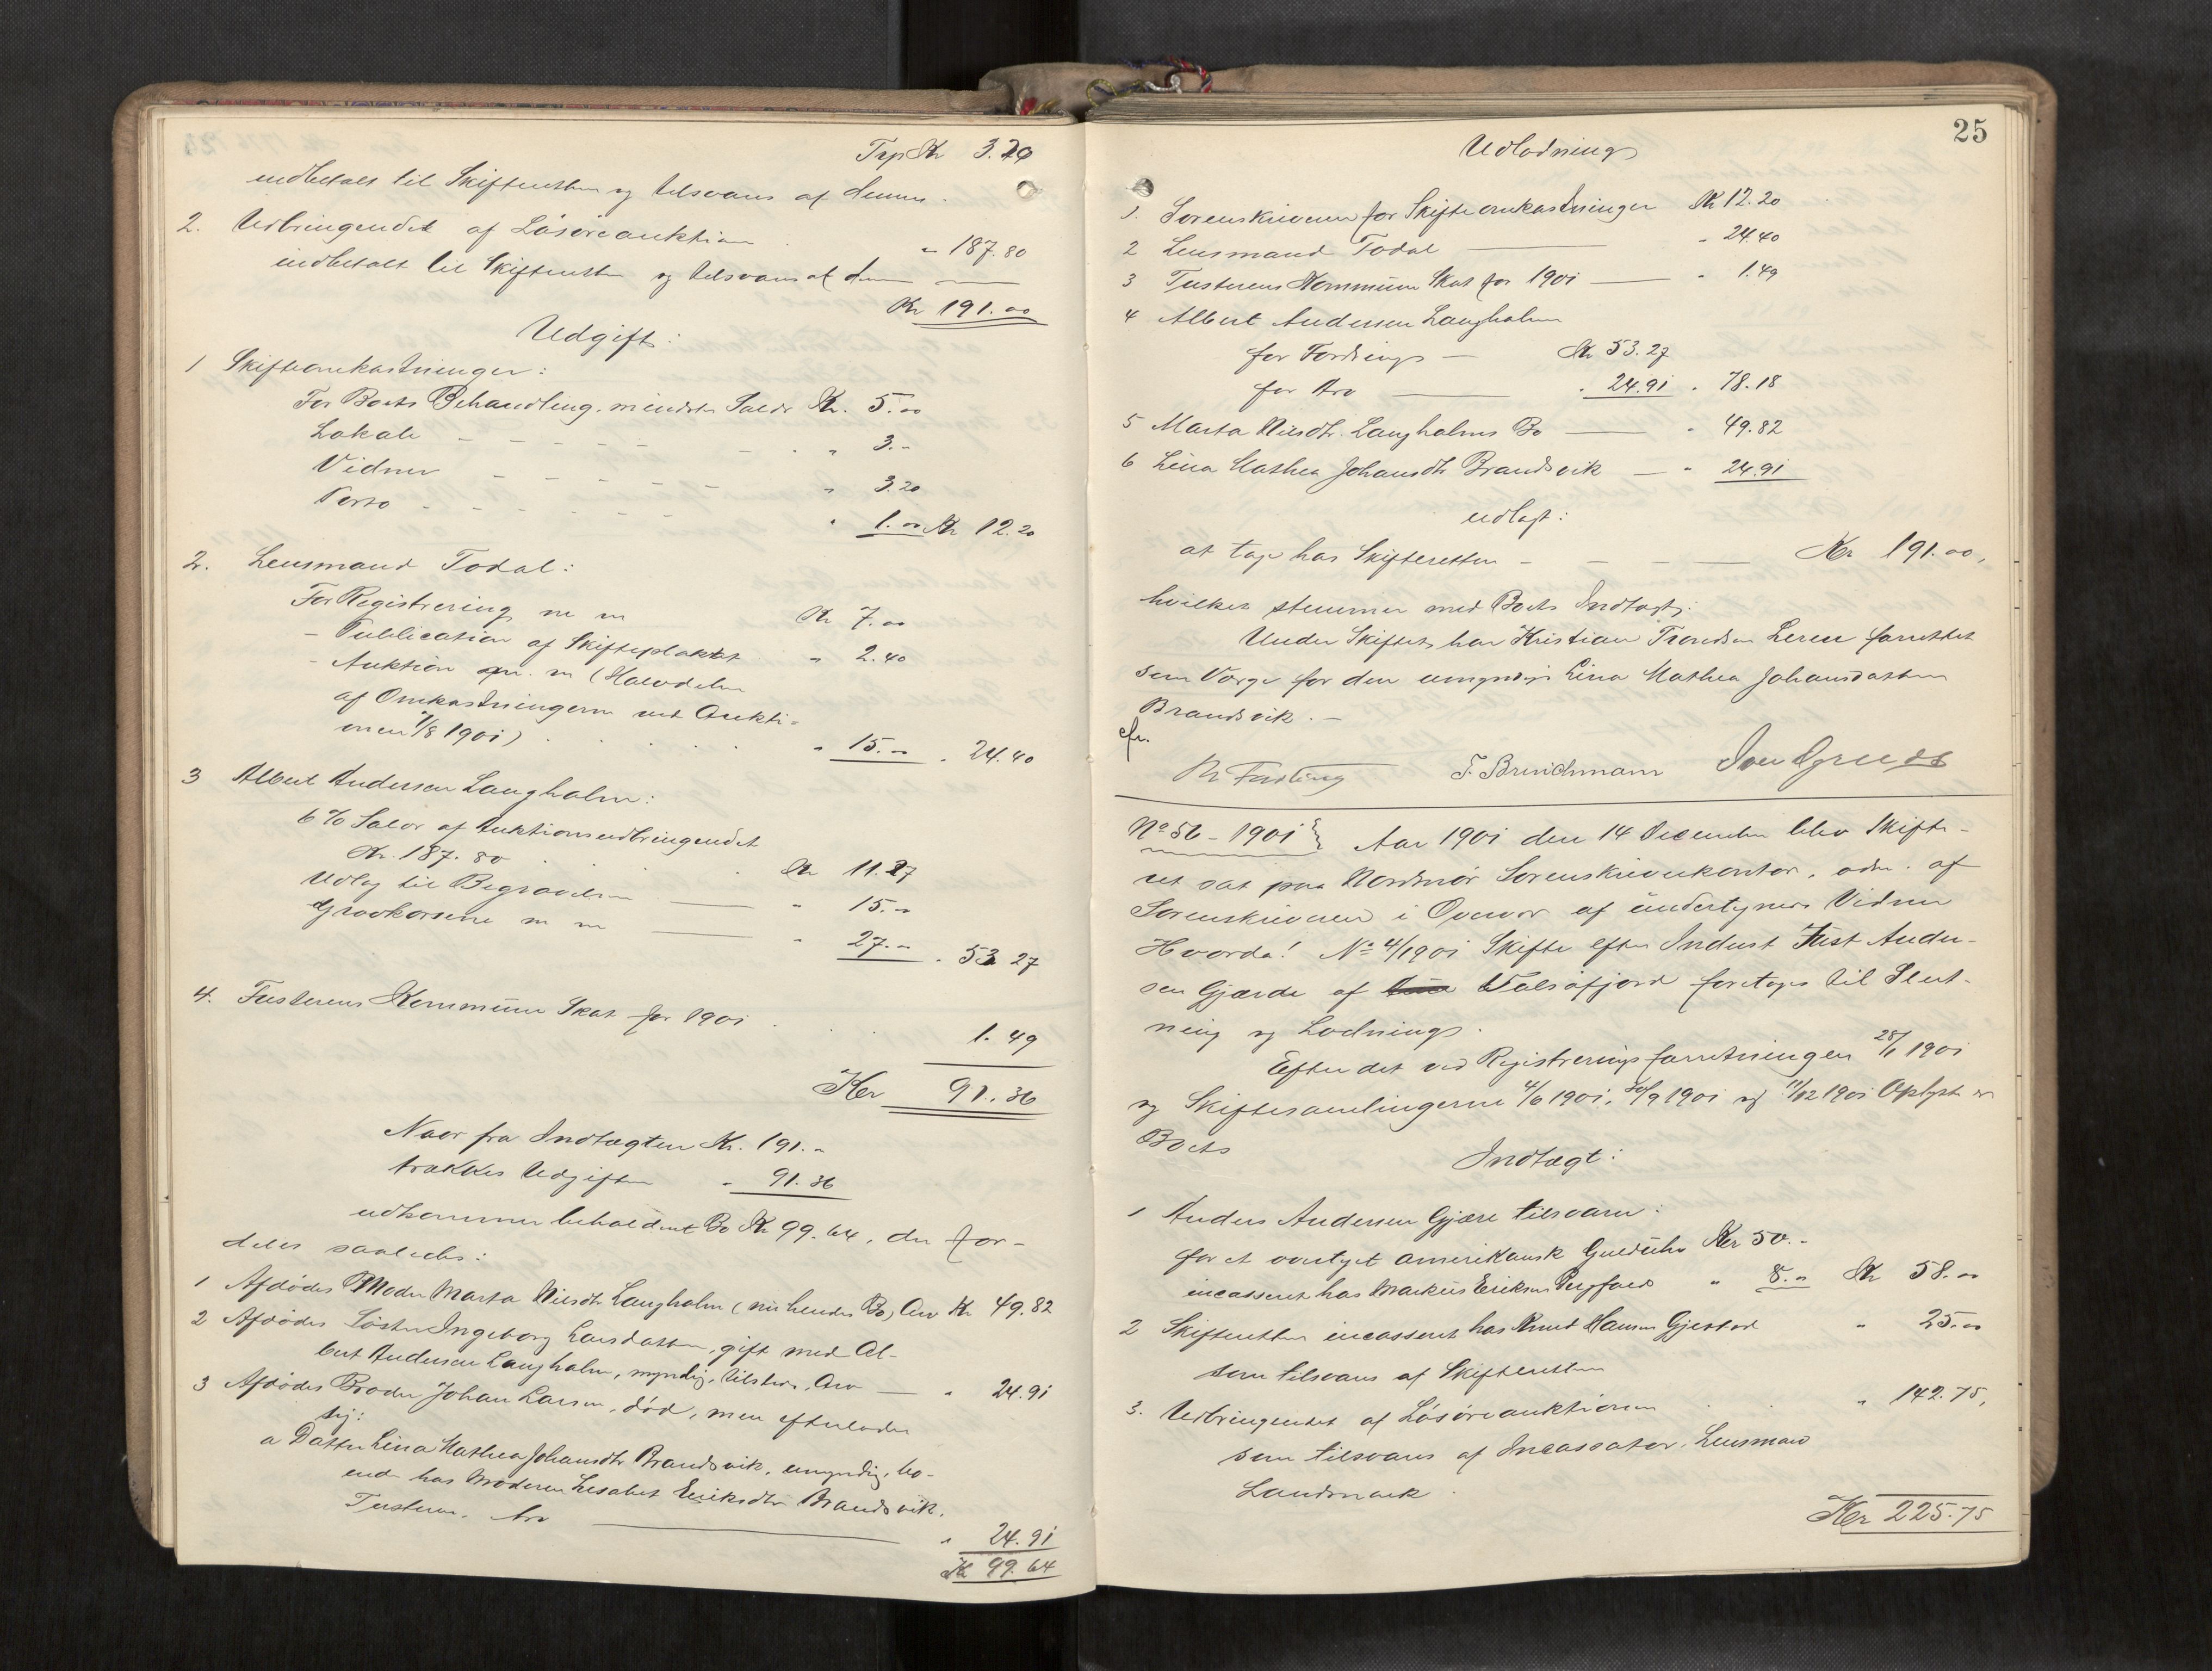 Trp Kr 3.20
indbetalt til Skifteretten og tilsvares af denne.
2. Udbringendet af Løsøreauktion " 187.80
indbetalt til Skifteretten og tilsvares af denne
Kr 191.00
Udgift:
1 Skifteomkostninger:
For Boets Behandling, mindste Saldo Kr. 5.00
Lokale " 3.-
Vidner " 3.20
Porto " 1.00 Kr 12.20
2. Lensmand Todal:
For Registrering m m Kr 7.00
- Publication af Skifteplakat " 2.40
- Auktion m. m (Halvdelen
af Omkostningerne ved Aukti-
onen /8 1901) " 15.- " 24.40
3 Albert Andersen Langholm:
6 % Salær af Auktionsudbringendet
Kr. 187.80 Kr 11.27
Udlæg til Begravelsen " 15.-
Gravkorsene m m " 27.- " 53 27
4. Tusterens Kommune Skat for 1901 1.49
Kr 91.36
Naar fra Indtægten Kr. 191.-
trækkes Udgiften " 91.36
udkommer beholdent Bo Kr 99.64, der for-
deles saaledes:
1 Afdødes Moder Marta Nilsdtr Langholm (nu hendes Bo) Arv Kr 49.82
2 Afdødes Søster Ingeborg Larsdatter, gift med Al-
bert Andersen Langholm, myndig, tilstede, Arv " 24.91
3 Afdødes Broder Johan Larsen, død, men efterlader
sig:
a Datter Lina Mathea Johansdtr Brandsvik, umyndig, bo-
ende hos Moderen Lisabet Eriksdtr Brandsvik,
Tusteren. Arv " 24.91
Kr 99.64
25
Udlodning
1. Sorenskriveren for Skifteomkostninger Kr 12.20
2 Lensmand Todal " 24.40
3 Tusterens Kommune Skat for 1901 " 1.49
4 Albert Andersen Langholm
for Fordring - Kr 53.27
for Arv " 24.91 " 78.18
5 Marta Nilsdtr. Langholms Bo " 49.82
6 Lina Mathea Johansdtr Brandsvik " 24.91
udlagt:
at tage hos Skifteretten Kr 191.00,
hvilket stemmer med Boets Indtægt.
Under Skiftet har Kristian Trondsen Leren forrettet
som Værge for den umyndige Lina Mathea Johansdatter
Brandsvik. -
cfr.
M Fasting J. Brinchmann Iver Grued
No 56 - 1901 } Aar 1901 den 14 December blev Skifte-
ret sat paa Nordmør Sorenskriverkontor, adm. af
Sorenskriveren i Overvær af undertegnede Vidner
Hvorda! No 4/1901 Skifte efter Inderst Just Ander-
sen Gjærde af Valsøfjord foretages til Slut-
ning og Lodning.
Efter det ved Registreringsforretningen 28/1 1901
og Skiftesamlingerne 4/6 1901, 30/9 1901 og 11/12 1901 Oplyst er
Boets
Indtægt:
1 Anders Andersen Gjære tilsvarer:
for et overtaget amerikansk Guldur Kr 50.-
incasseret hos Markus Eriksen Bergfald " 8.- Kr 58.00
2 Skifteretten incasseret hos Knud Hansen Gjestad " 25.00
som tilsvares af Skifteretten
3. Udbringendet af Løsøreauktionen " 142.75,
som tilsvares af Incassator, Lensmand
Landmark.
Kr 225.75